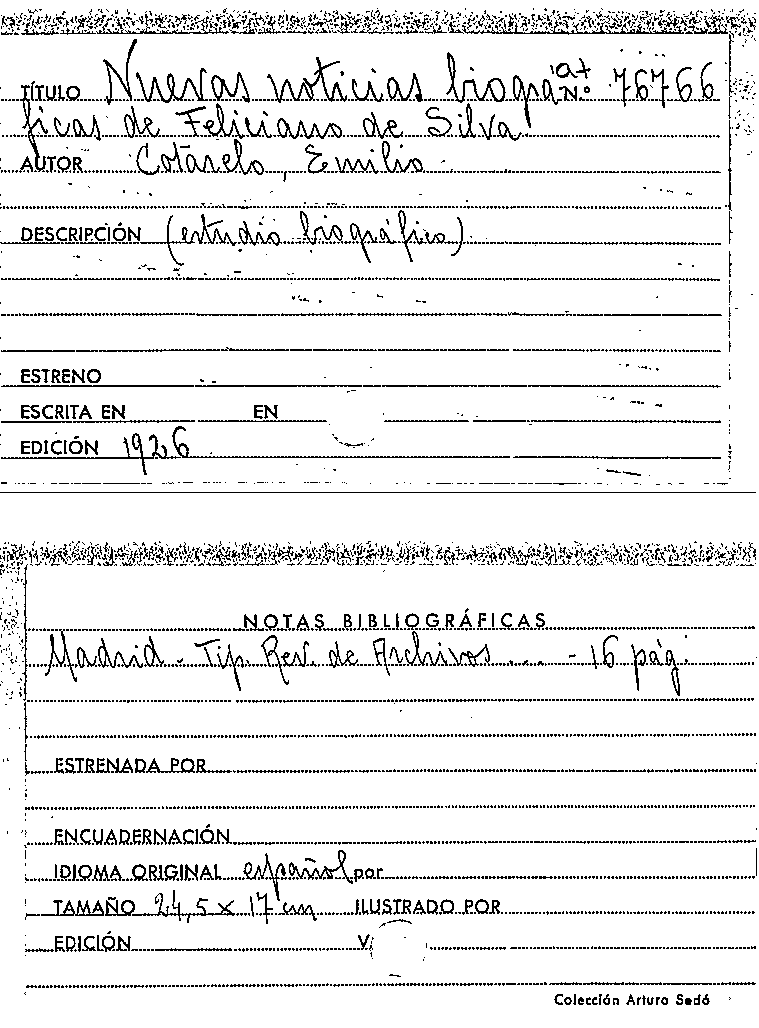 TÍTULO Nuevas noticias biográ N.º 76766
ficas de Feliciano de Silva
AUTOR Cotarelo, Emilio
DESCRIPCIÓN (estudio biográfico)
ESTRENO
ESCRITA EN EN
EDICIÓN 1926
NOTAS BIBLIOGRÁFICAS
Madrid - Tip. Rev. de Archivos ... - 16 pág.
ESTRENADA POR
ENCUADERNACIÓN
IDIOMA ORIGINAL español por
TAMAÑO 24,5 x 17 cm ILUSTRADO POR
EDICIÓN
Colección Arturo Sedó